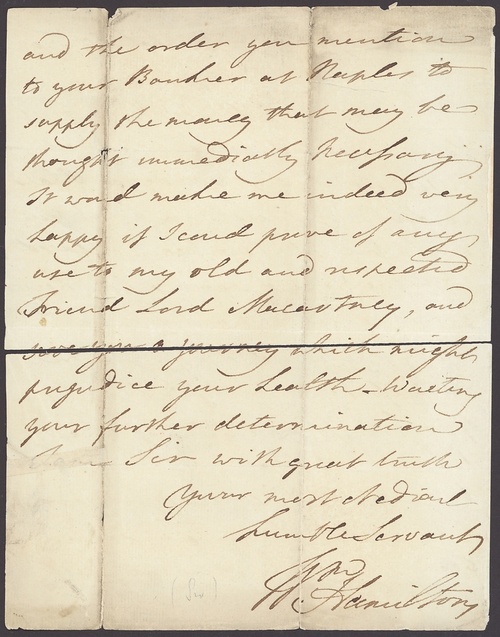 and the order you mention
to your Banker at Naples to
supply the money that may be
thought immediately necessary
It woud make me indeed very
happy if I coud prove of any
use to my old and respected
Friend Lord Macartney, and
save you a journey which might
prejudice your health - Waiting
your further determination
Sir with great truth
your most obedient
humble Servant
Wm Hamilton